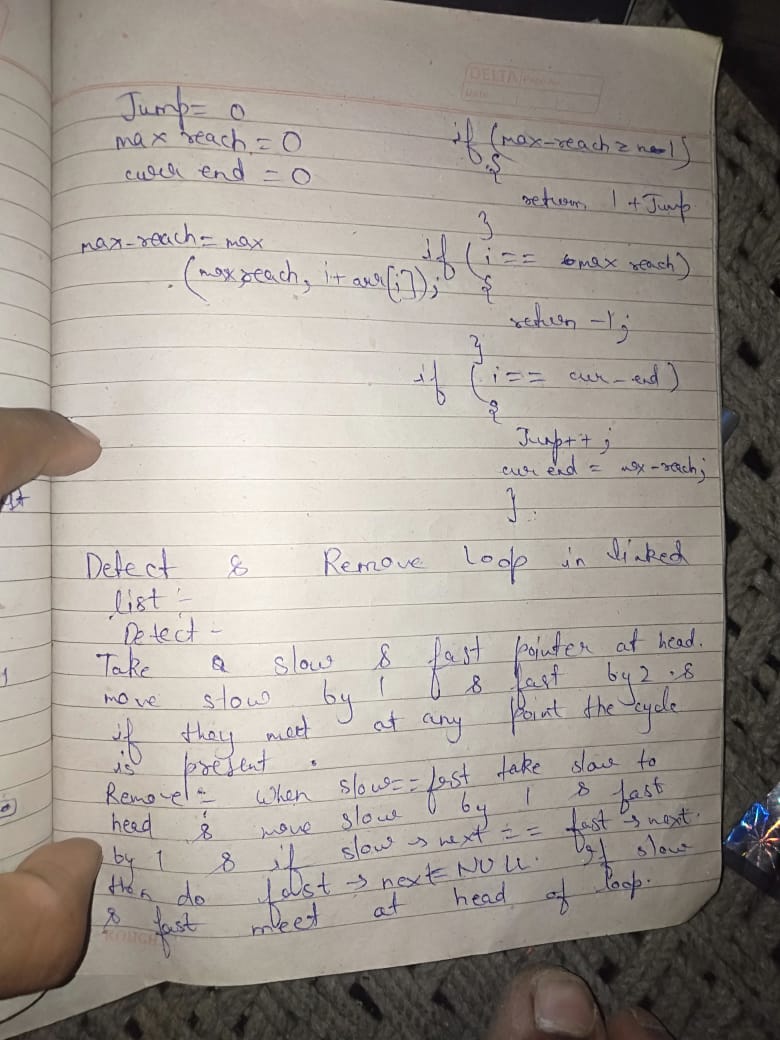 DELTA
Date
Jump = 0
max reach = 0
curr end = 0
max-reach = max
(max reach, i + arr[i]);
if (max-reach ≥ n-1)
{
return 1 + Jump
}
if (i == max reach)
{
return -1;
}
if (i == cur-end)
{
Jump++;
cur end = max-reach;
}
Detect & Remove loop in linked
list :-
Detect -
Take a slow & fast pointer at head.
move slow by 1 & fast by 2 & 
if they meet at any point the cycle
is present.
Remove :- When slow == fast take slow to
head & move slow by 1 & fast
by 1 & if slow → next == fast → next.
then do fast → next = NULL. If slow
& fast meet at head of loop.
ROUGH